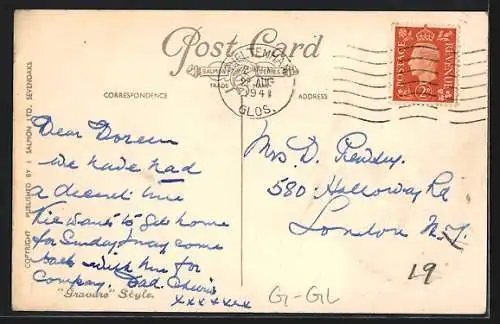 Post Card
SALMON SERIES
TRADE MARK
CORRESPONDENCE
ADDRESS
CHELTENHAM
AUG
1941
GLOS.
POSTAGE
REVENUE
2D
COPYRIGHT PUBLISHED BY J SALMON LTD. SEVENOAKS
Dear Doreen
We have had
a decent time
Vie wants to get home
for Sunday I may come
back with him for
Company. Dad. Cheerio
xxxxxxx
"Gravure" Style.
Mrs D.
580 Holloway Rd
London N.7
19
G-GL